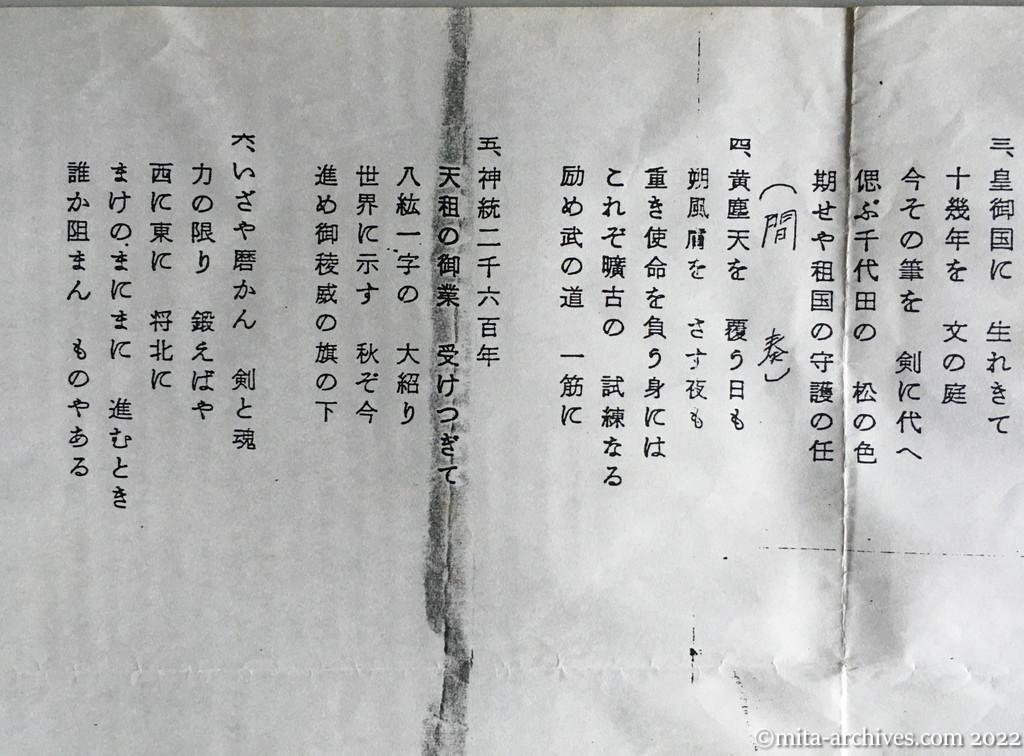 三、皇御国に　生れきて
十幾年を　文の庭
今その筆を　剣に代へ
偲ぶ千代田の　松の色
期せや祖国の守護の任
（間　奏）
四、黄塵天を　覆う日も
朔風膚を　さす夜も
重き使命を負う身には
これぞ曠古の　試練なる
励め武の道　一筋に
五、神統二千六百年
天祖の御業　受けつぎて
八紘一字の　大紹り
世界に示す　秋ぞ今
進め御稜威の旗の下
六、いざや磨かん　剣と魂
力の限り　鍛えばや
西に東に　将北に
まけのまにまに　進むとき
誰か阻まん　ものやある
©mita-archives.com 2022